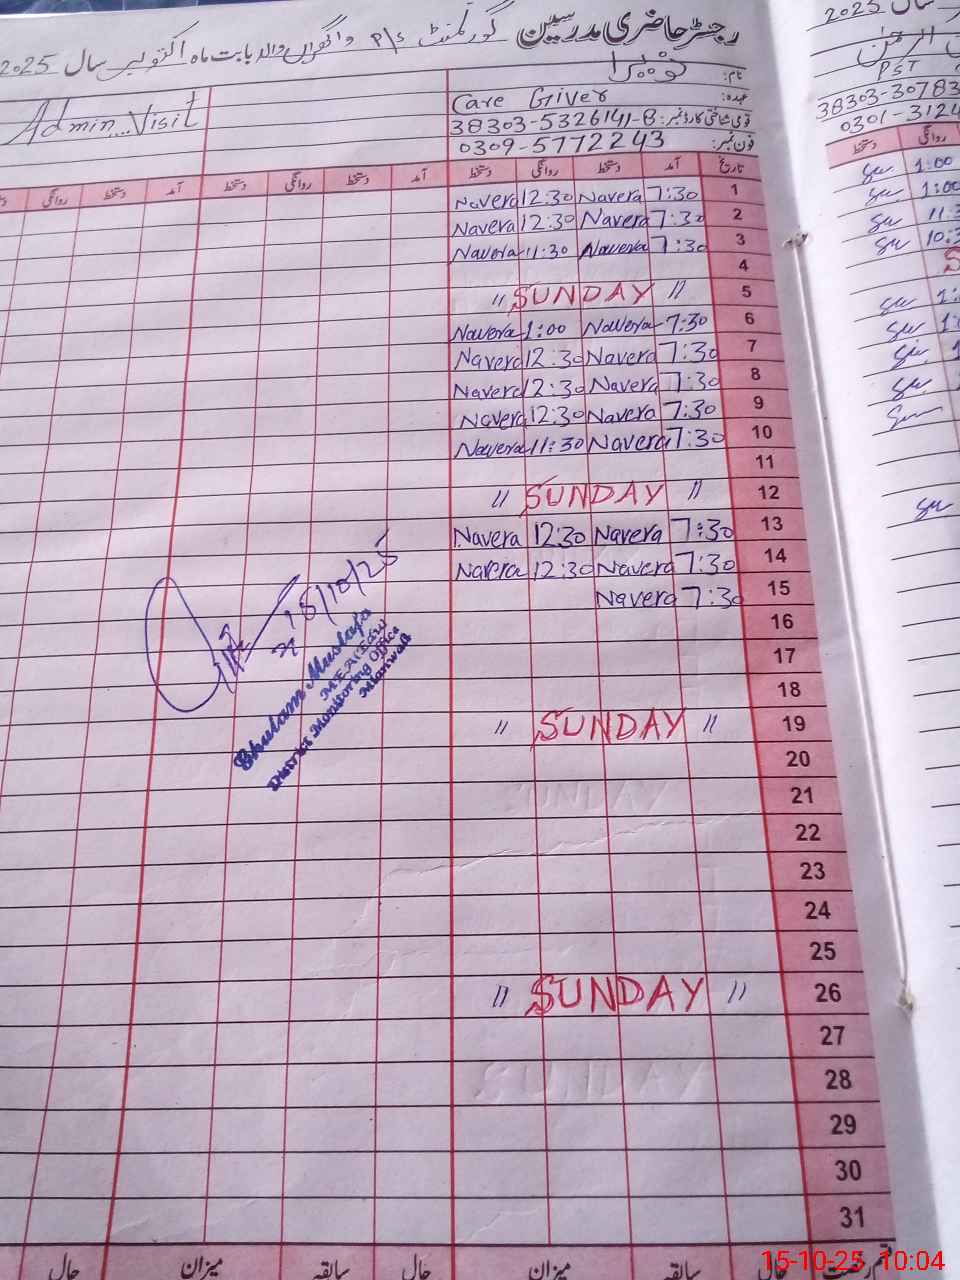 رجسٹر حاضری مدرسین گورنمنٹ P/S واگھراں والا بابت ماہ اکتوبر سال 2025
نام: نویرا
عہدہ: Care Giver
قومی شناختی کارڈ نمبر: 38303-5326141-8
فون نمبر: 0309-5772243
Admin Visit
تاریخ آمد دستخط روانگی دستخط آمد دستخط روانگی دستخط آمد دستخط روانگی
1 7:30 Navera 12:30 Navera
2 7:30 Navera 12:30 Navera
3 7:30 Navera 11:30 Navera
4
5 " SUNDAY "
6 7:30 Navera 1:00 Navera
7 7:30 Navera 12:30 Navera
8 7:30 Navera 12:30 Navera
9 7:30 Navera 12:30 Navera
10 7:30 Navera 11:30 Navera
11
12 " SUNDAY "
13 7:30 Navera 12:30 Navera
14 7:30 Navera 12:30 Navera
15 7:30 Navera
16
17
18
19 " SUNDAY "
20
21
22
23
24
25
26 " SUNDAY "
27
28
29
30
31
15/10/25
Ghulam Mustafa
MEA(Edu)
District Monitoring Office
Mianwali
حال سابقہ میزان حال سابقہ میزان حال
سال 2025
الرحمٰن
PST
38303-30783
0301-3124
روانگی دستخط
1:00
1:00
11:3
10:3
15-10-25 10:04